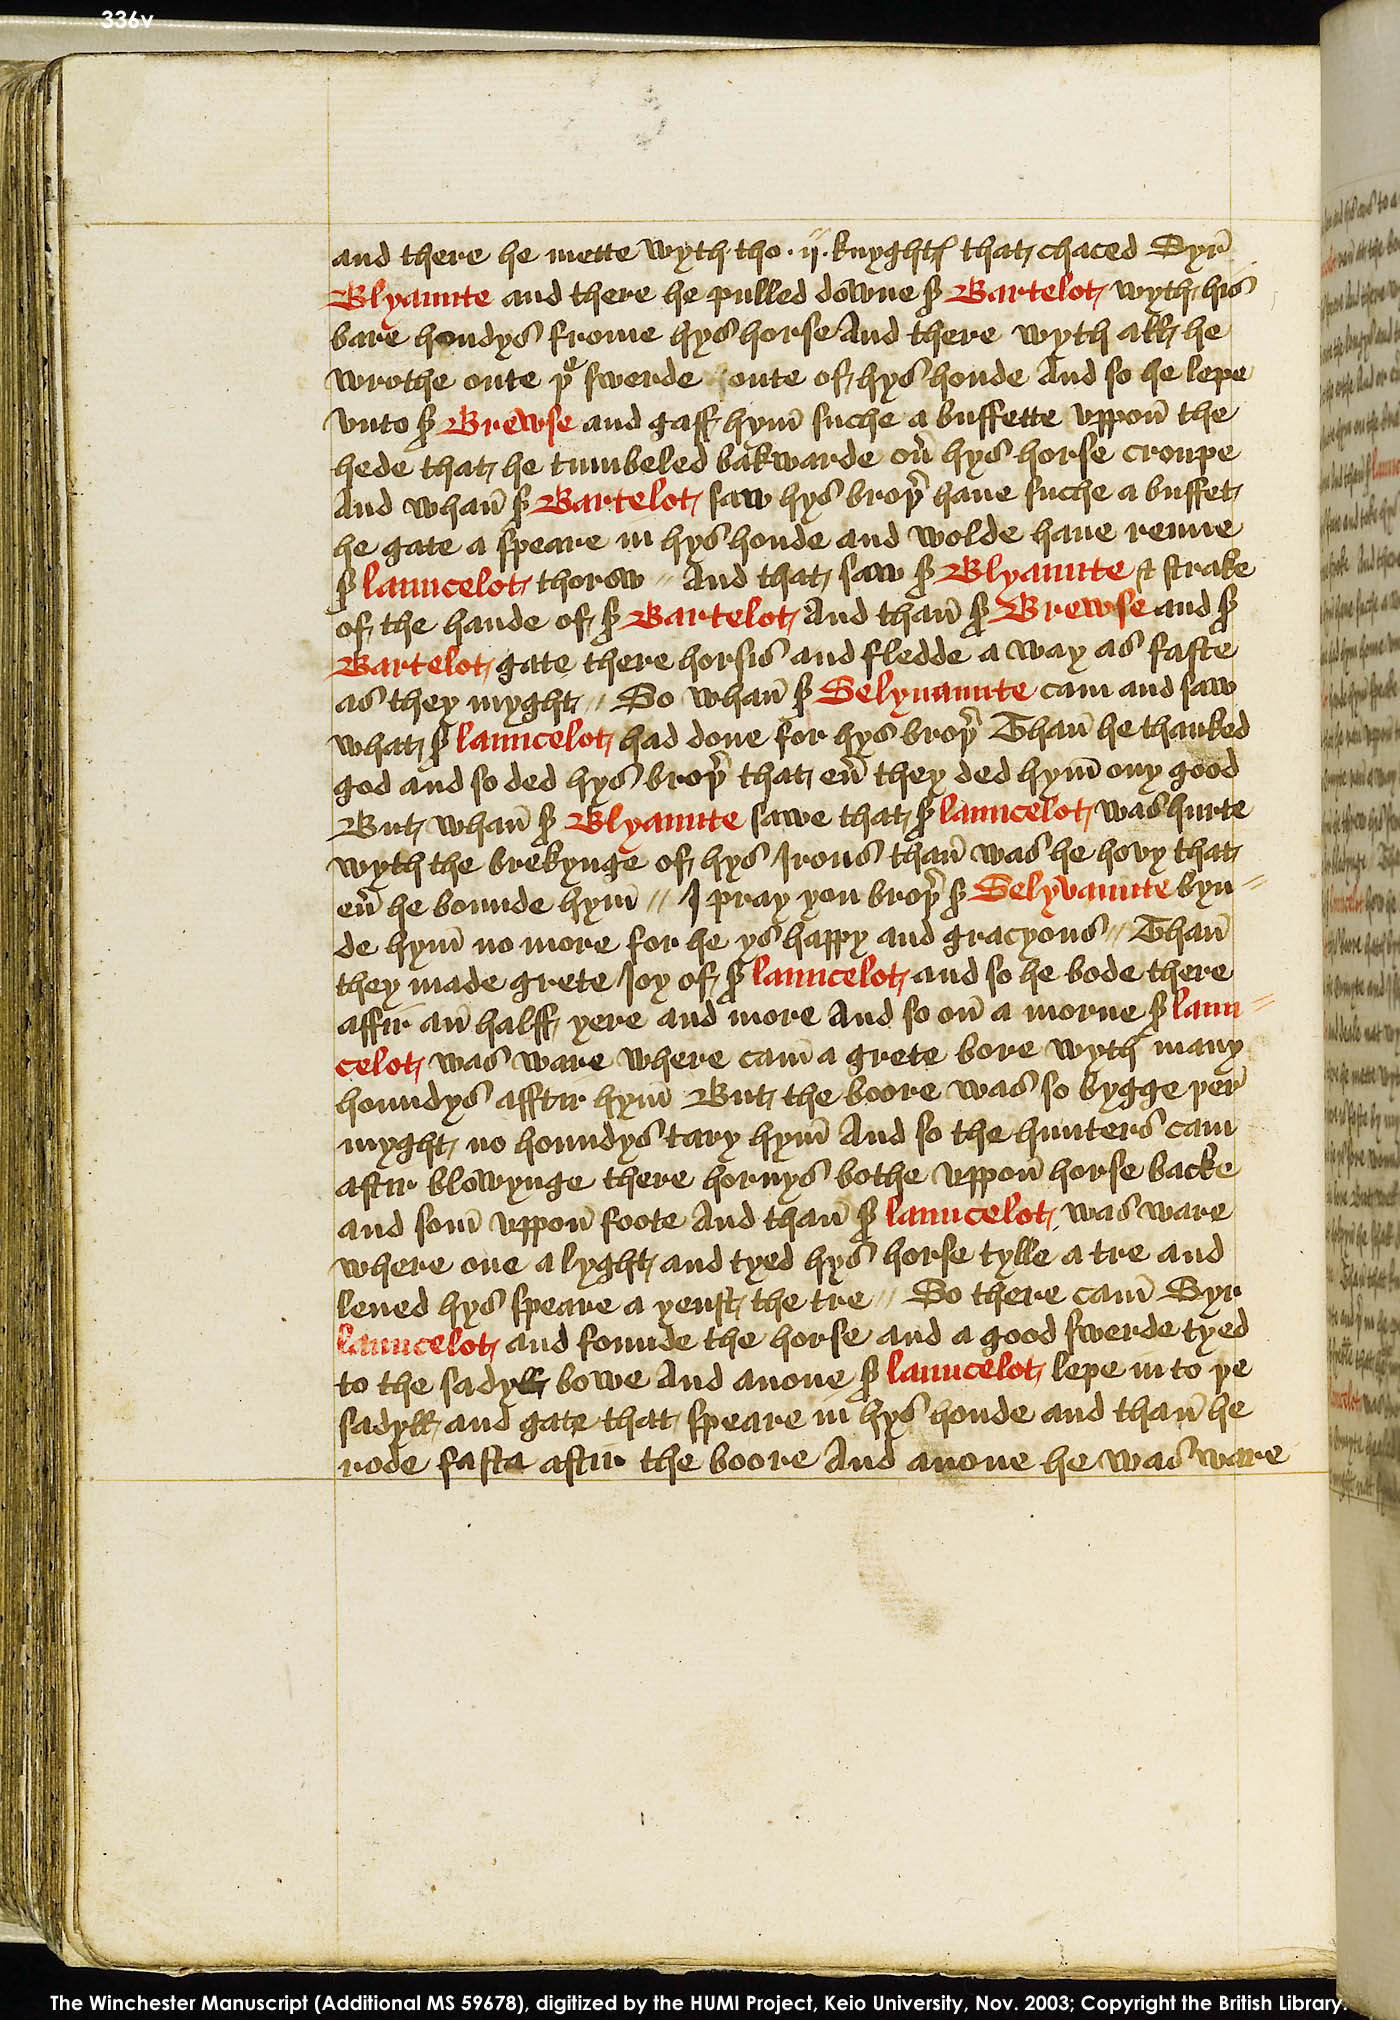 336v
and there he mette wyth tho .ij. knyghtꝭ that chaced Syr̄
Blyaunte and there he pulled downe sͬ Bartelot wyth his
bare hondys frome hys horse And there wyth all he
wrothe oute þͤ swerde oute of hys honde And so he lepe
vnto sͬ Brewse and gaff hym̄ suche a buffette vppon̄ the
hede that he tumbeled bakwarde on̄ hys horse croupe
And whan̄ sͬ Bartelot saw hys broþ̄ haue suche a buffet
he gate a speare in hys honde and wolde haue renne
sͬ launcelot thorow // And that saw sͬ Blyaunte & strake
of the hande of sͬ Bartelot And than̄ sͬ Brewse and sͬ
Bartelot gate there horsis and fledde a way as faste
as they myght // So whan̄ sͬ Selyuaunte cam and saw
what sͬ launcelot had done for hys broþ̄ Than̄ he thanked
god and so ded hys broþ̄ that eū they ded hym̄ ony good
But whan̄ sͬ Blyaunte sawe that sͬ launcelot was hurte
wyth the brekynge of hys Irons than̄ was he hevy that
eū he bounde hym̄ // I pray you broþ̄ sͬ Selyvaunte byn=
de hym̄ no more for he ys happy and gracyous // Than̄
they made grete Ioy of sͬ launcelot and so he bode there
afftir an̄ halff yere and more And so on̄ a morne sͬ laun=
celot was ware where cam̄ a grete bore wyth many
houndys afftir hym̄ But the boore was so bygge þer̄
myght no houndys tary hym̄ And so the hunters cam
aftir blowynge there hornys bothe vppon̄ horse backe
and som̄ vppon̄ foote And than̄ sͬ launcelot was ware
where one alyght and tyed hys horse tylle a tre and
lened hys speare a yenst the tre // So there cam̄ Syr
launcelot and founde the horse and a good swerde tyed
to the sadyll bowe And anone sͬ launcelot lepe in to þe
sadyll and gate that speare in hys honde and than̄ he
rode faste aftir the boore And anone he was ware
The Winchester Manuscript (Additional MS 59678), digitized by the HUMI Project, Keio University, Nov. 2003; Copyright the British Library.